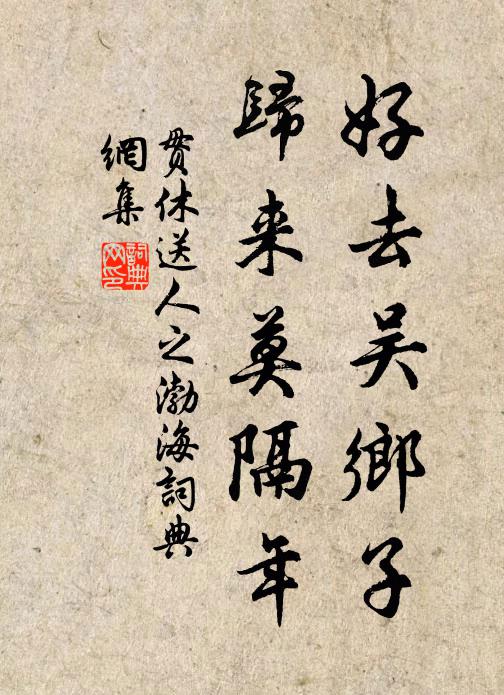 好去吴鄉子
歸来莫隔年
贯休送人之渤海詞典
網集
詞典
网印